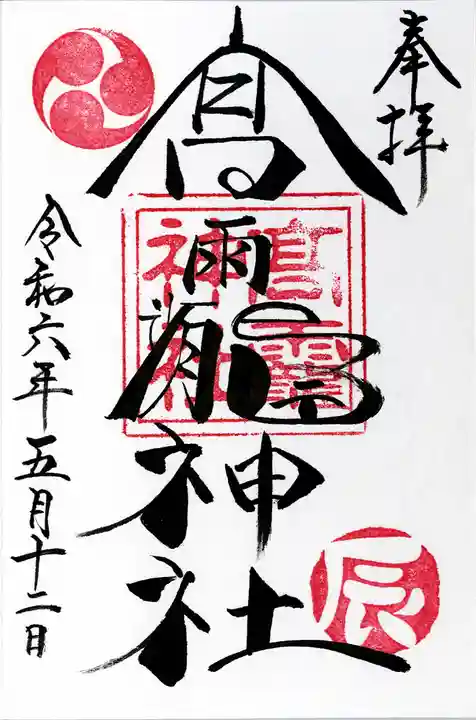 奉拝
高龗神社
高龗
神社
令和六年五月十二日
辰